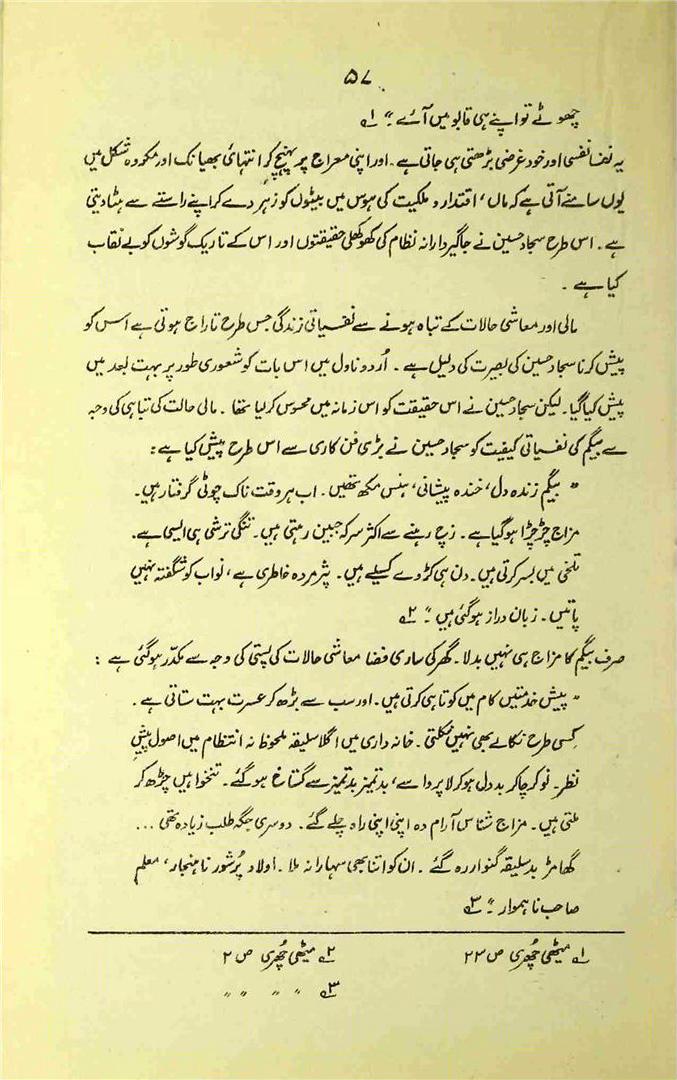 ۵۷
چھوٹے تو اپنے ہی قابو میں آئے۔“ ۱؎
یہ نفسا نفسی اور خود غرضی بڑھتی ہی جاتی ہے۔ اور اپنی معراج پر پہنچ کر انتہائی بھیانک اور مکروہ شکل میں
یوں سامنے آتی ہے کہ ماں، اقتدار و ملکیت کی ہوس میں بیٹوں کو زہر دے کر اپنے راستے سے ہٹا دیتی
ہے۔ اس طرح سجاد حسین نے جاگیردارانہ نظام کی کھوکھلی حقیقتوں اور اس کے تاریک گوشوں کو بے نقاب
کیا ہے۔
مالی اور معاشی حالات کے تباہ ہونے سے نفسیاتی زندگی جس طرح تاراج ہوتی ہے اس کو
پیش کرنا سجاد حسین کی بصیرت کی دلیل ہے۔ اُردو ناول میں اس بات کو شعوری طور پر بہت بعد میں
پیش کیا گیا۔ لیکن سجاد حسین نے اس حقیقت کو اس زمانہ میں محسوس کر لیا تھا۔ مالی حالت کی تباہی کی وجہ
سے بیگم کی نفسیاتی کیفیت کو سجاد حسین نے بڑی فن کاری سے اس طرح پیش کیا ہے :
” بیگم زندہ دل، خندہ پیشانی، ہنس مکھ تھیں۔ اب ہر وقت ناک چوٹی گرفتار ہیں۔
مزاج چڑچڑا ہو گیا ہے۔ زچ رہنے سے اکثر سرکہ جبین رہتی ہیں۔ تنگی ترشی ہی ایسی ہے۔
تلخی میں بسر کرتی ہیں۔ دن ہی کڑوے کسیلے ہیں۔ پژمردہ خاطری ہے، نواب کو شگفتہ نہیں
پاتیں۔ زبان دراز ہو گئی ہیں۔“ ۲؎
صرف بیگم کا مزاج ہی نہیں بدلا۔ گھر کی ساری فضا معاشی حالات کی پستی کی وجہ سے مکدّر ہو گئی ہے :
” پیش خدمتیں کام میں کوتاہی کرتی ہیں۔ اور سب سے بڑھ کر عسرت بہت ستاتی ہے۔
کسی طرح نکالے بھی نہیں نکلتی۔ خانہ داری میں اگلا سلیقہ ملحوظ نہ انتظام میں اصول پیشِ
نظر۔ نوکر چاکر بد دل ہو کر لاپروا سے، بدتمیز بدتمیز سے گستاخ ہو گئے۔ تنخواہیں چڑھ کر
ملتی ہیں۔ مزاج شناس آرام دہ اپنی اپنی راہ چلے گئے۔ دوسری جگہ طلب زیادہ تھی ...
گھامڑ بد سلیقہ گنوار رہ گئے۔ ان کو اتنا بھی سہارا نہ ملا۔ اولاد پُرشور ناہنجار، معلم
صاحب ناہموار۔“ ۳؎
۱؎ میٹھی چھُری ص ۲۳
۲؎ میٹھی چھُری ص ۲
۳؎ ” ” ” ”